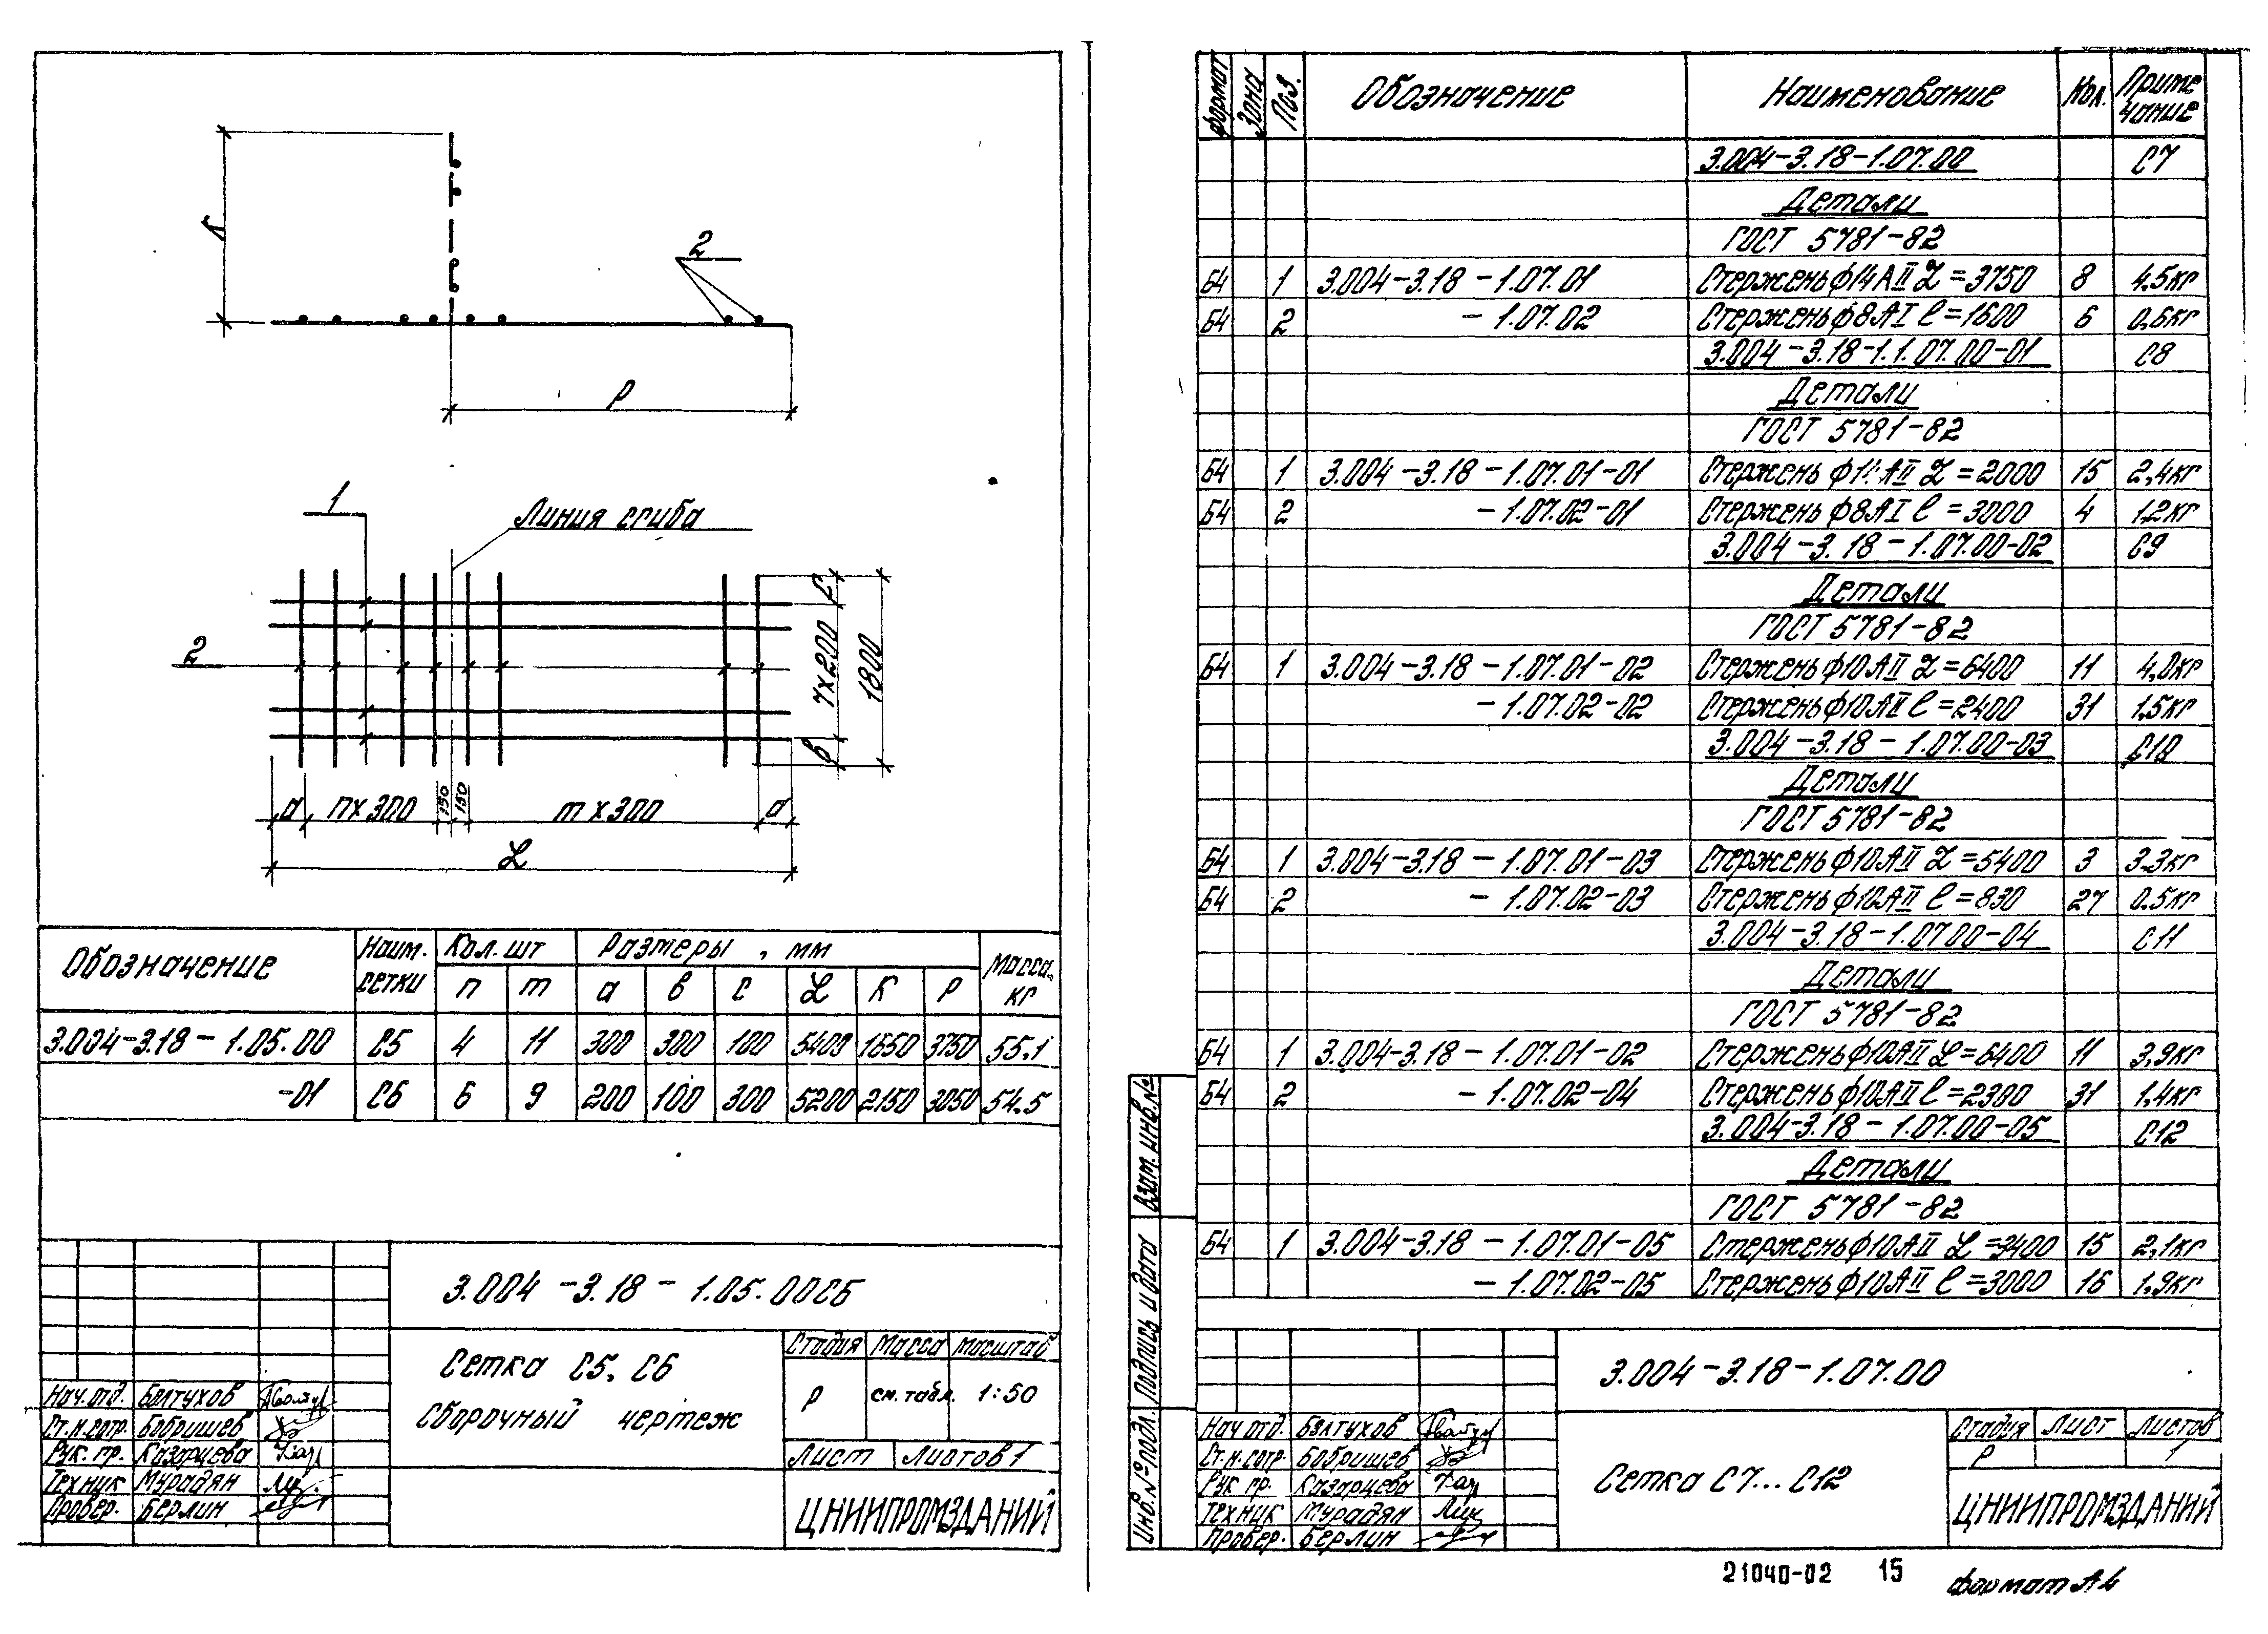 К
2
Р
1
Линия сгиба
2
с
7х200
1800
в
а
nх300
150
150
mх300
а
L
Обозначение Наим. сетки Кол. шт Размеры, мм Масса, кг
n m а в с L К Р
3.004-3.18-1.05.00 С5 4 11 300 300 100 5400 1650 3750 55.1
-01 С6 6 9 200 100 300 5200 2150 3050 54.5
3.004-3.18-1.05.00СБ
Сетка С5, С6
Сборочный чертеж
Стадия Масса Масштаб
Р см. табл. 1:50
Лист Листов 1
ЦНИИПРОМЗДАНИЙ
Нач. отд. Балтухов
Ст.н.сотр. Бобришев
Рук. гр. Казарцева
Техник Мурадян
Провер. Берлин
Формат Зона Поз. Обозначение Наименование Кол. Приме чание
3.004-3.18-1.07.00 С7
Детали
ГОСТ 5781-82
Б4 1 3.004-3.18-1.07.01 Стержень ф14АII L=3750 8 4.5кг
Б4 2 -1.07.02 Стержень ф8АI l=1600 6 0.6кг
3.004-3.18-1.1.07.00-01 С8
Детали
ГОСТ 5781-82
Б4 1 3.004-3.18-1.07.01-01 Стержень АII L=2000 15 2,4кг
Б4 2 -1.07.02-01 Стержень ф8АI l=3000 4 1.2кг
3.004-3.18-1.07.00-02 С9
Детали
ГОСТ 5781-82
Б4 1 3.004-3.18-1.07.01-02 Стержень ф10АII L=6400 11 4.0кг
-1.07.02-02 Стержень ф10АII l=2400 31 1.5кг
3.004-3.18-1.07.00-03 С10
Детали
ГОСТ 5781-82
Б4 1 3.004-3.18-1.07.01-03 Стержень ф10АII L=5400 3 3.3кг
Б4 2 -1.07.02-03 Стержень ф10АII l=830 27 0.5кг
3.004-3.18-1.07.00-04 С11
Детали
ГОСТ 5781-82
Б4 1 3.004-3.18-1.07.01-02 Стержень ф10АII L=6400 11 3,9кг
Б4 2 -1.07.02-04 Стержень ф10АII l=2300 31 1,4кг
3.004-3.18-1.07.00-05 С12
Детали
ГОСТ 5781-82
Б4 1 3.004-3.18-1.07.01-05 Стержень ф10АII L=3400 15 2,1кг
-1.07.02-05 Стержень ф10АII l=3000 16 1,9кг
Взам. инв.№
Подпись и дата
Инв.№ подл.
3.004-3.18-1.07.00
Нач отд. Балтухов
Ст.н.сотр. Бобришев
Рук гр. Казарцева
Техник Мурадян
Провер. Берлин
Сетка С7...С12
Стадия Лист Листов
Р 1
ЦНИИПРОМЗДАНИЙ
21040-02 15
Формат А4